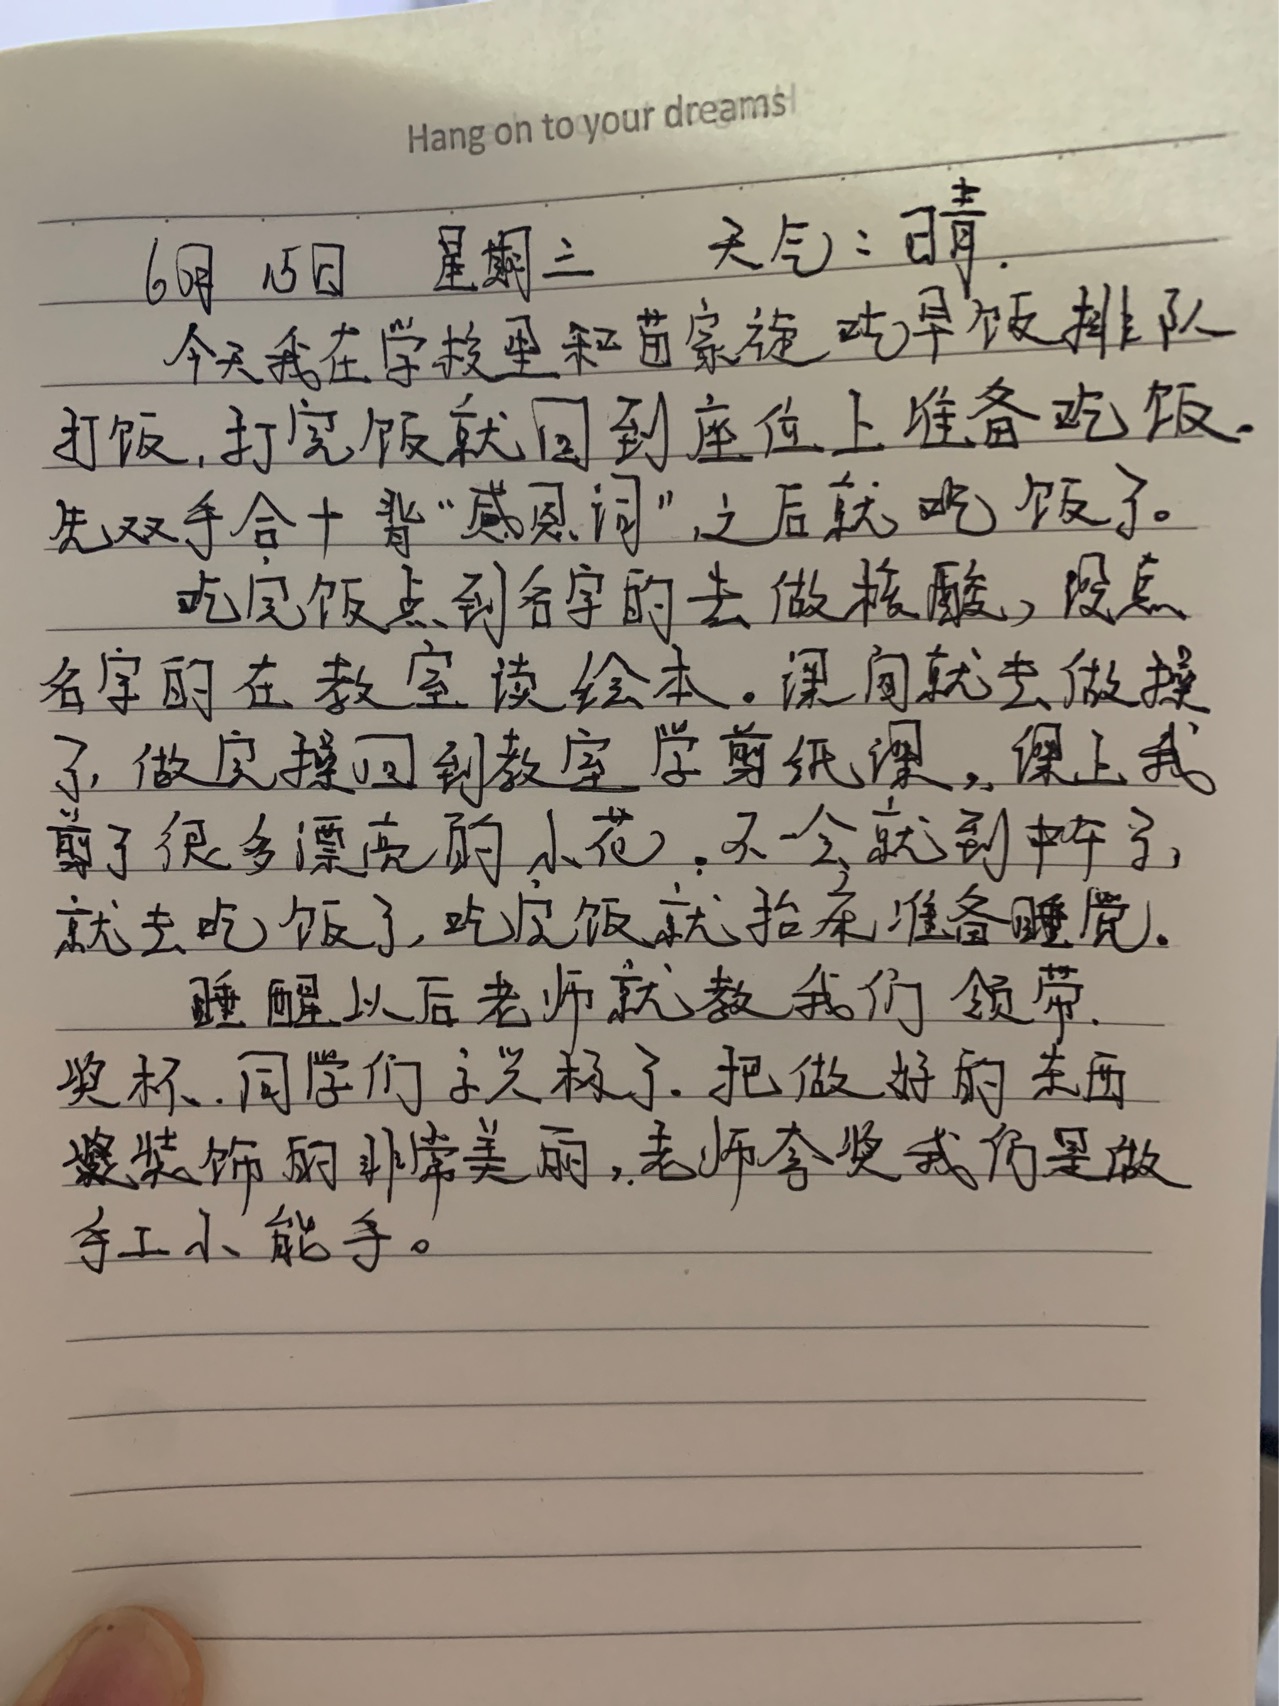 Hang on to your dreams!
6月 15日 星期三 天气:晴.
今天我在学校里和苗家旋吃早饭排队
打饭,打完饭就回到座位上准备吃饭.
先双手合十背“感恩词”,之后就吃饭了。
吃完饭点到名字的去做核酸,没点
名字的在教室读绘本。课间就去做操
了,做完操回到教室学剪纸课,课上我
剪了很多漂亮的小花.不一会就到中午了,
就去吃饭了,吃完饭就抬床准备睡觉.
睡醒以后老师就教我们领带.
奖杯、同学们 了.把做好的东西
装饰的非常美丽,老师夸奖我们是做
手工小能手。